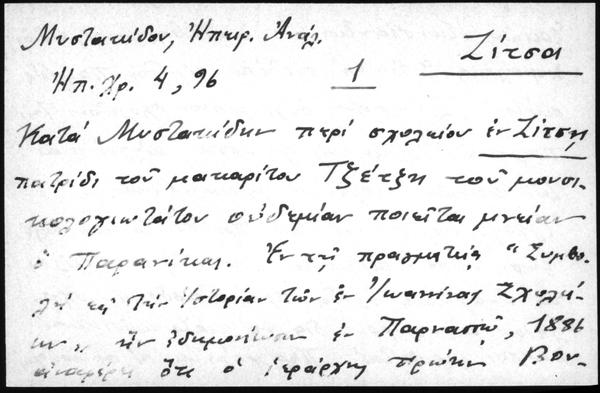 Μυστακίδου, Ἠπειρ. Ἀνάλ.
Ζίτσα
Ἠπ. Χρ. 4, 96
1
Κατά Μυστακίδην περί σχολείου ἐν Ζίτσῃ
πατρίδι τοῦ μακαρίτου Τζέτζη τοῦ μουσι-
κολογιωτάτου οὐδεμίαν ποιεῖται μνείαν
ὁ Παρανίκας. Ἐν τῇ πραγματείᾳ "Συμβο-
λή εἰς τήν Ἱστορίαν τῶν ἐν Ἰωαννίνοις Σχολεί-
ων" ἣν ἐδημοσίευσεν ἐν Παρνασσῷ, 1886
ἀναφέρει ὅτι ὁ ἱεράρχης πρώην Βον-